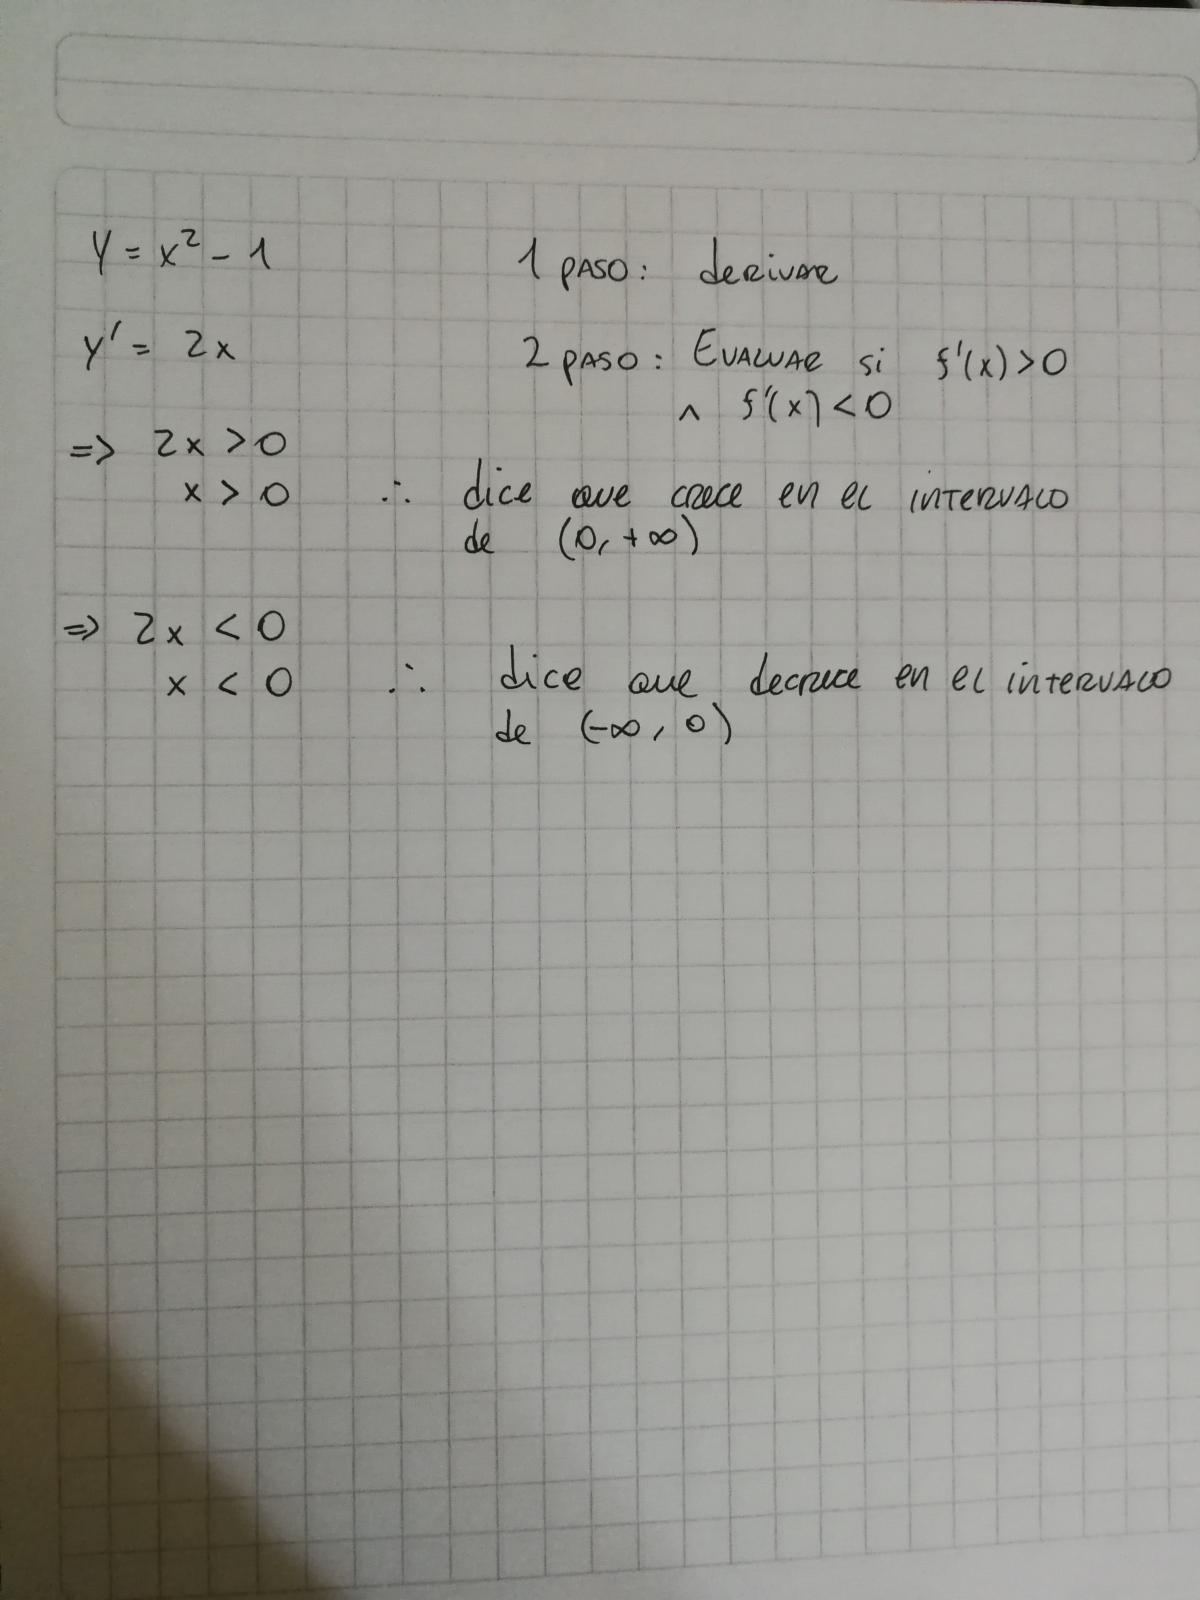 y = x² - 1    1 PASO: derivar
y' = 2x    2 PASO: Evaluar si f'(x) > 0
∧ f'(x) < 0
=> 2x > 0
x > 0  ∴  dice que crece en el intervalo
de (0, +∞)
=> 2x < 0
x < 0  ∴  dice que decrece en el intervalo
de (-∞, 0)